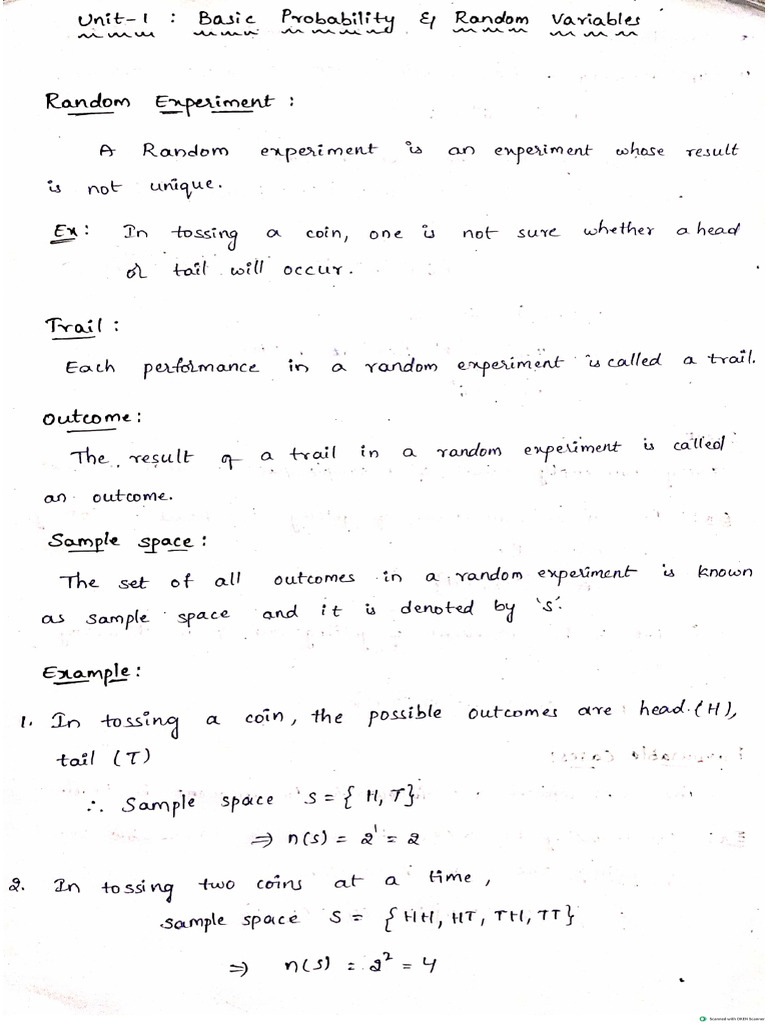 Unit-1 : Basic Probability & Random Variables
Random Experiment :
A Random experiment is an experiment whose result
is not unique.
Ex : In tossing a coin, one is not sure whether a head
or tail will occur.
Trail :
Each performance in a random experiment is called a trail.
Outcome :
The result of a trail in a random experiment is called
an outcome.
Sample space :
The set of all outcomes in a random experiment is known
as sample space and it is denoted by 's'.
Example :
1. In tossing a coin, the possible outcomes are head (H),
tail (T)
∴ Sample space 'S = { H, T}
⇒ n(s) = 2¹ = 2
2. In tossing two coins at a time,
sample space S = {HH, HT, TH, TT}
⇒ n(s) = 2² = 4
Scanned with OKEN Scanner